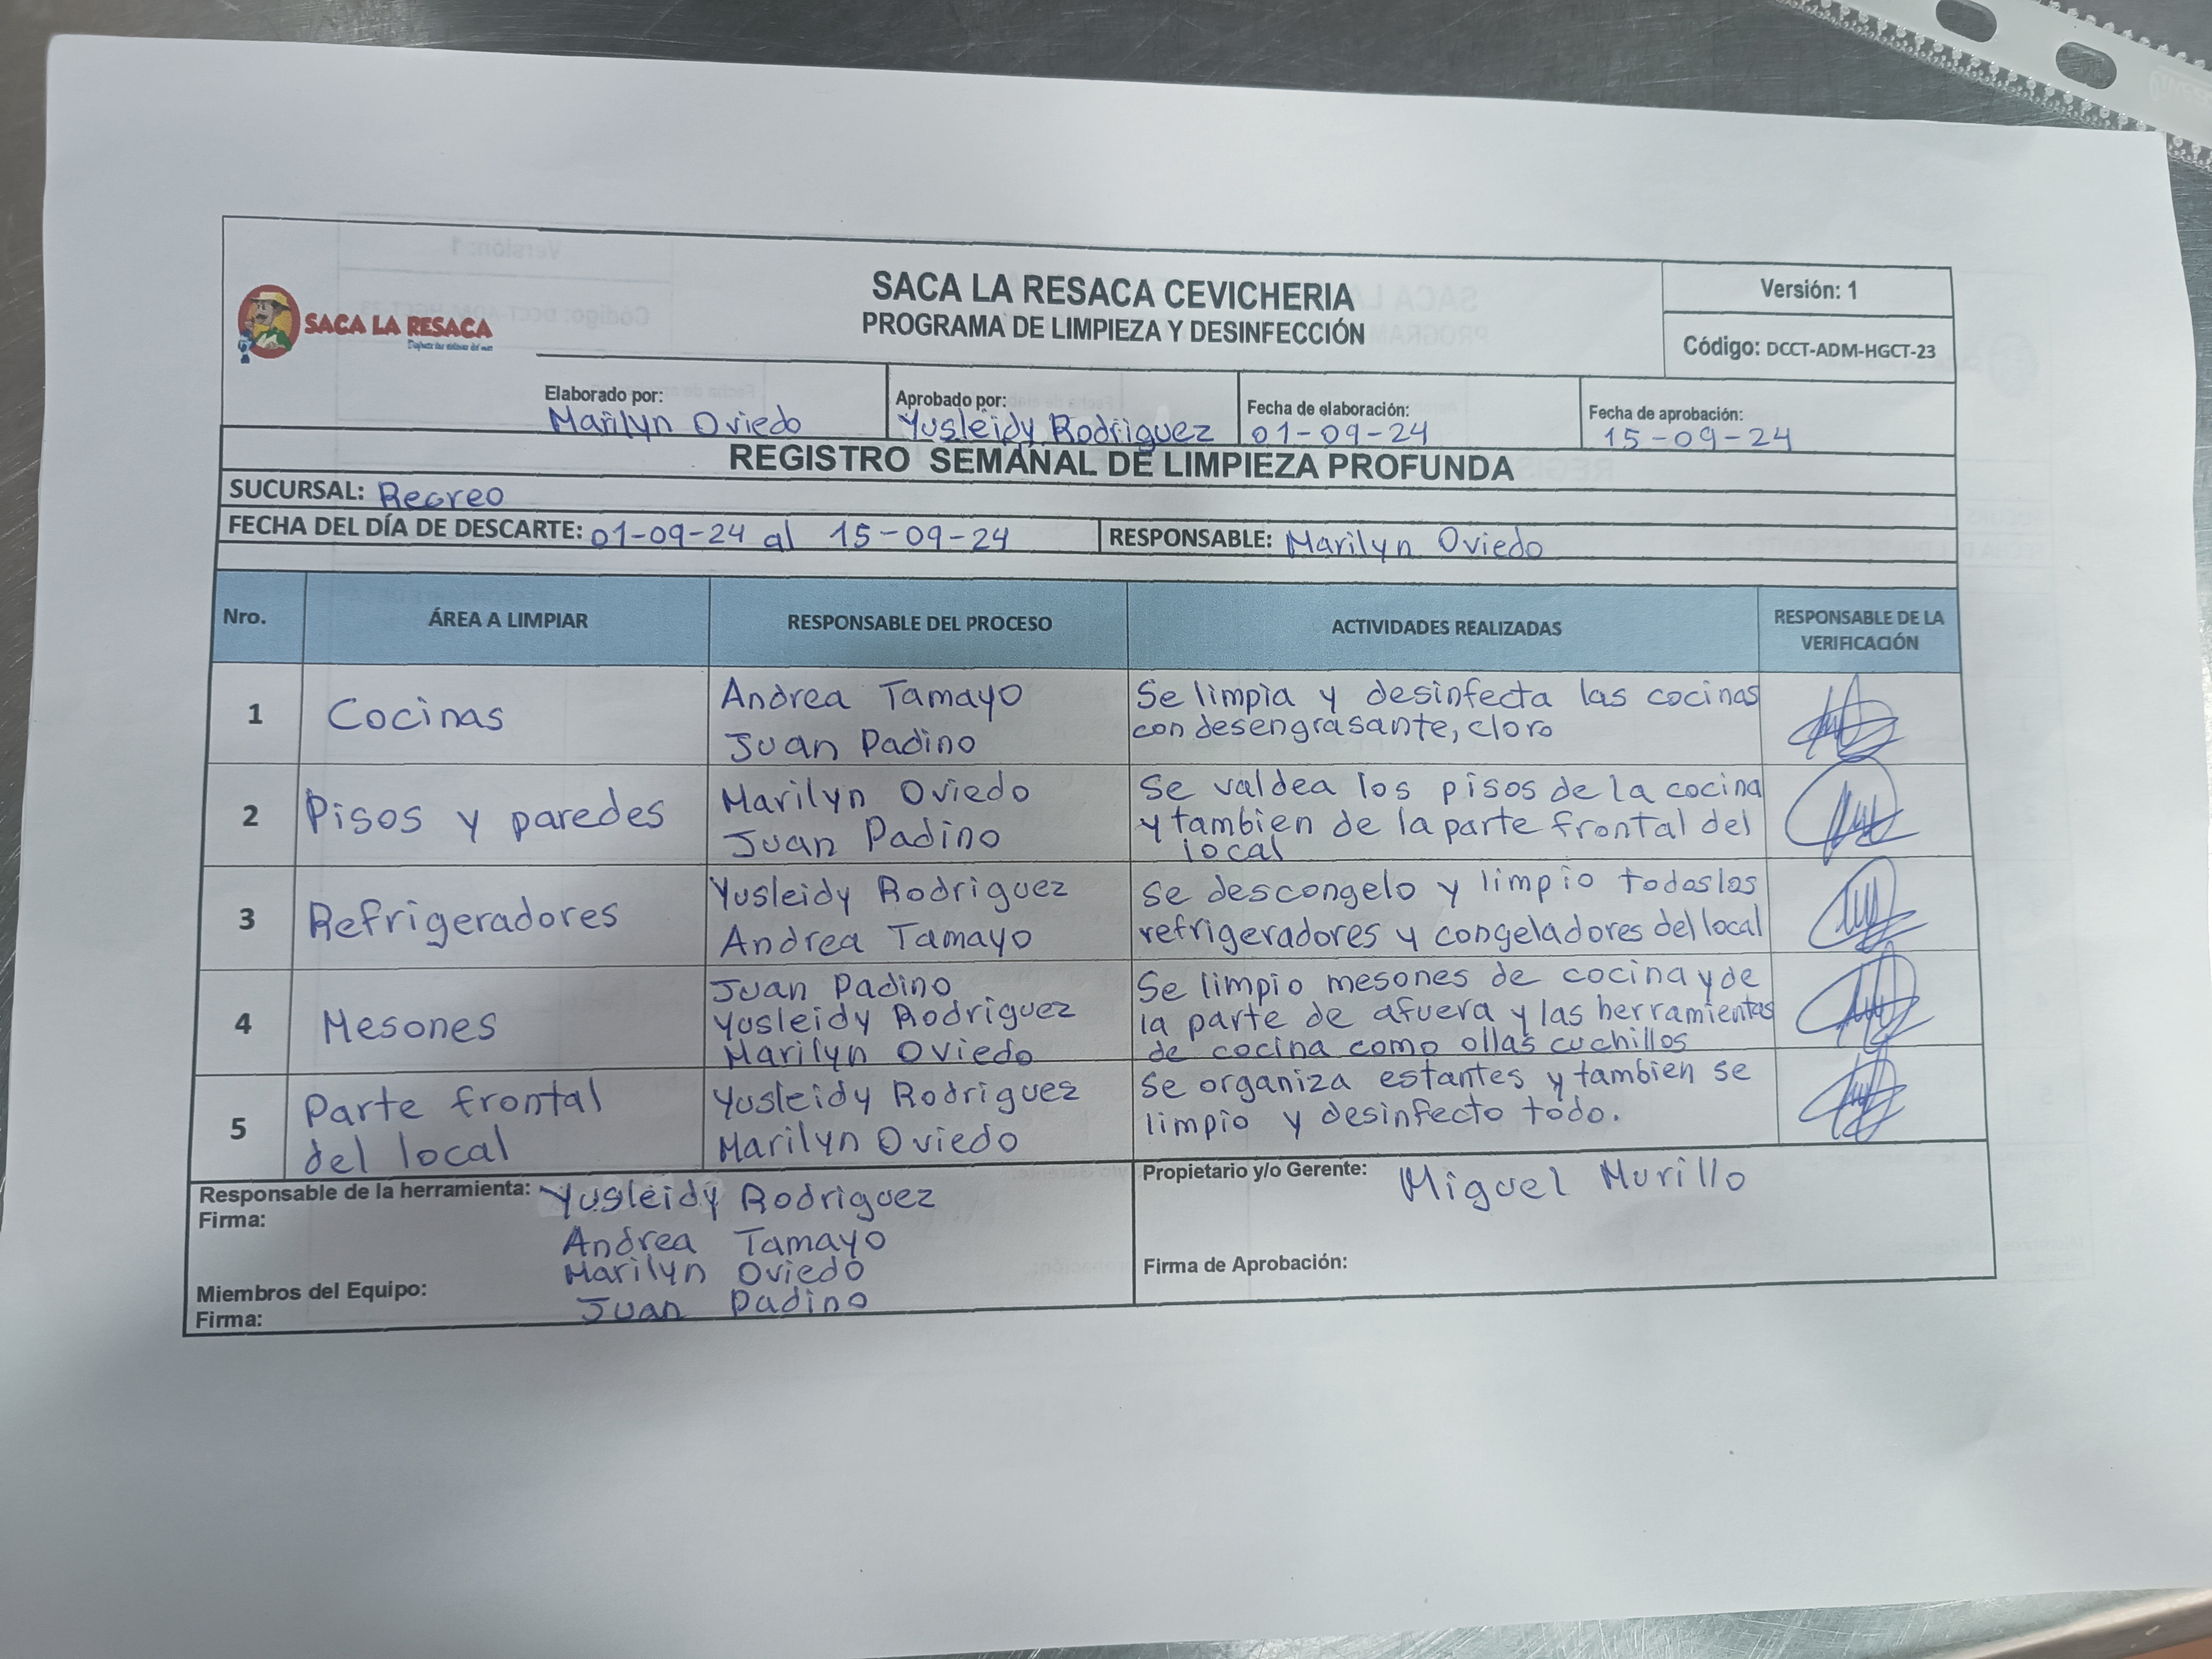 SACA LA RESACA CEVICHERIA
PROGRAMA DE LIMPIEZA Y DESINFECCIÓN
Versión: 1
Código: DCCT-ADM-HGCT-23
SACA LA RESACA
Elaborado por:
Marilyn Oviedo
Aprobado por:
Yusleidy Rodriguez
Fecha de elaboración:
01-09-24
Fecha de aprobación:
15-09-24
REGISTRO SEMANAL DE LIMPIEZA PROFUNDA
SUCURSAL: Recreo
FECHA DEL DÍA DE DESCARTE: 01-09-24 al 15-09-24
RESPONSABLE: Marilyn Oviedo
Nro.
ÁREA A LIMPIAR
RESPONSABLE DEL PROCESO
ACTIVIDADES REALIZADAS
RESPONSABLE DE LA
VERIFICACIÓN
1
Cocinas
Andrea Tamayo
Juan Padino
Se limpia y desinfecta las cocinas
con desengrasante, cloro
2
Pisos y paredes
Marilyn Oviedo
Juan Padino
Se valdea los pisos de la cocina
y tambien de la parte frontal del
local
3
Refrigeradores
Yusleidy Rodriguez
Andrea Tamayo
Se descongelo y limpio todos los
refrigeradores y congeladores del local
4
Mesones
Juan Padino
Yusleidy Rodriguez
Marilyn Oviedo
Se limpio mesones de cocina y de
la parte de afuera y las herramientas
de cocina como ollas cuchillos
5
Parte frontal
del local
Yusleidy Rodriguez
Marilyn Oviedo
Se organiza estantes y tambien se
limpio y desinfecto todo.
Responsable de la herramienta: Yusleidy Rodriguez
Firma:
Andrea Tamayo
Marilyn Oviedo
Miembros del Equipo:
Juan Padino
Firma:
Propietario y/o Gerente: Miguel Murillo
Firma de Aprobación: